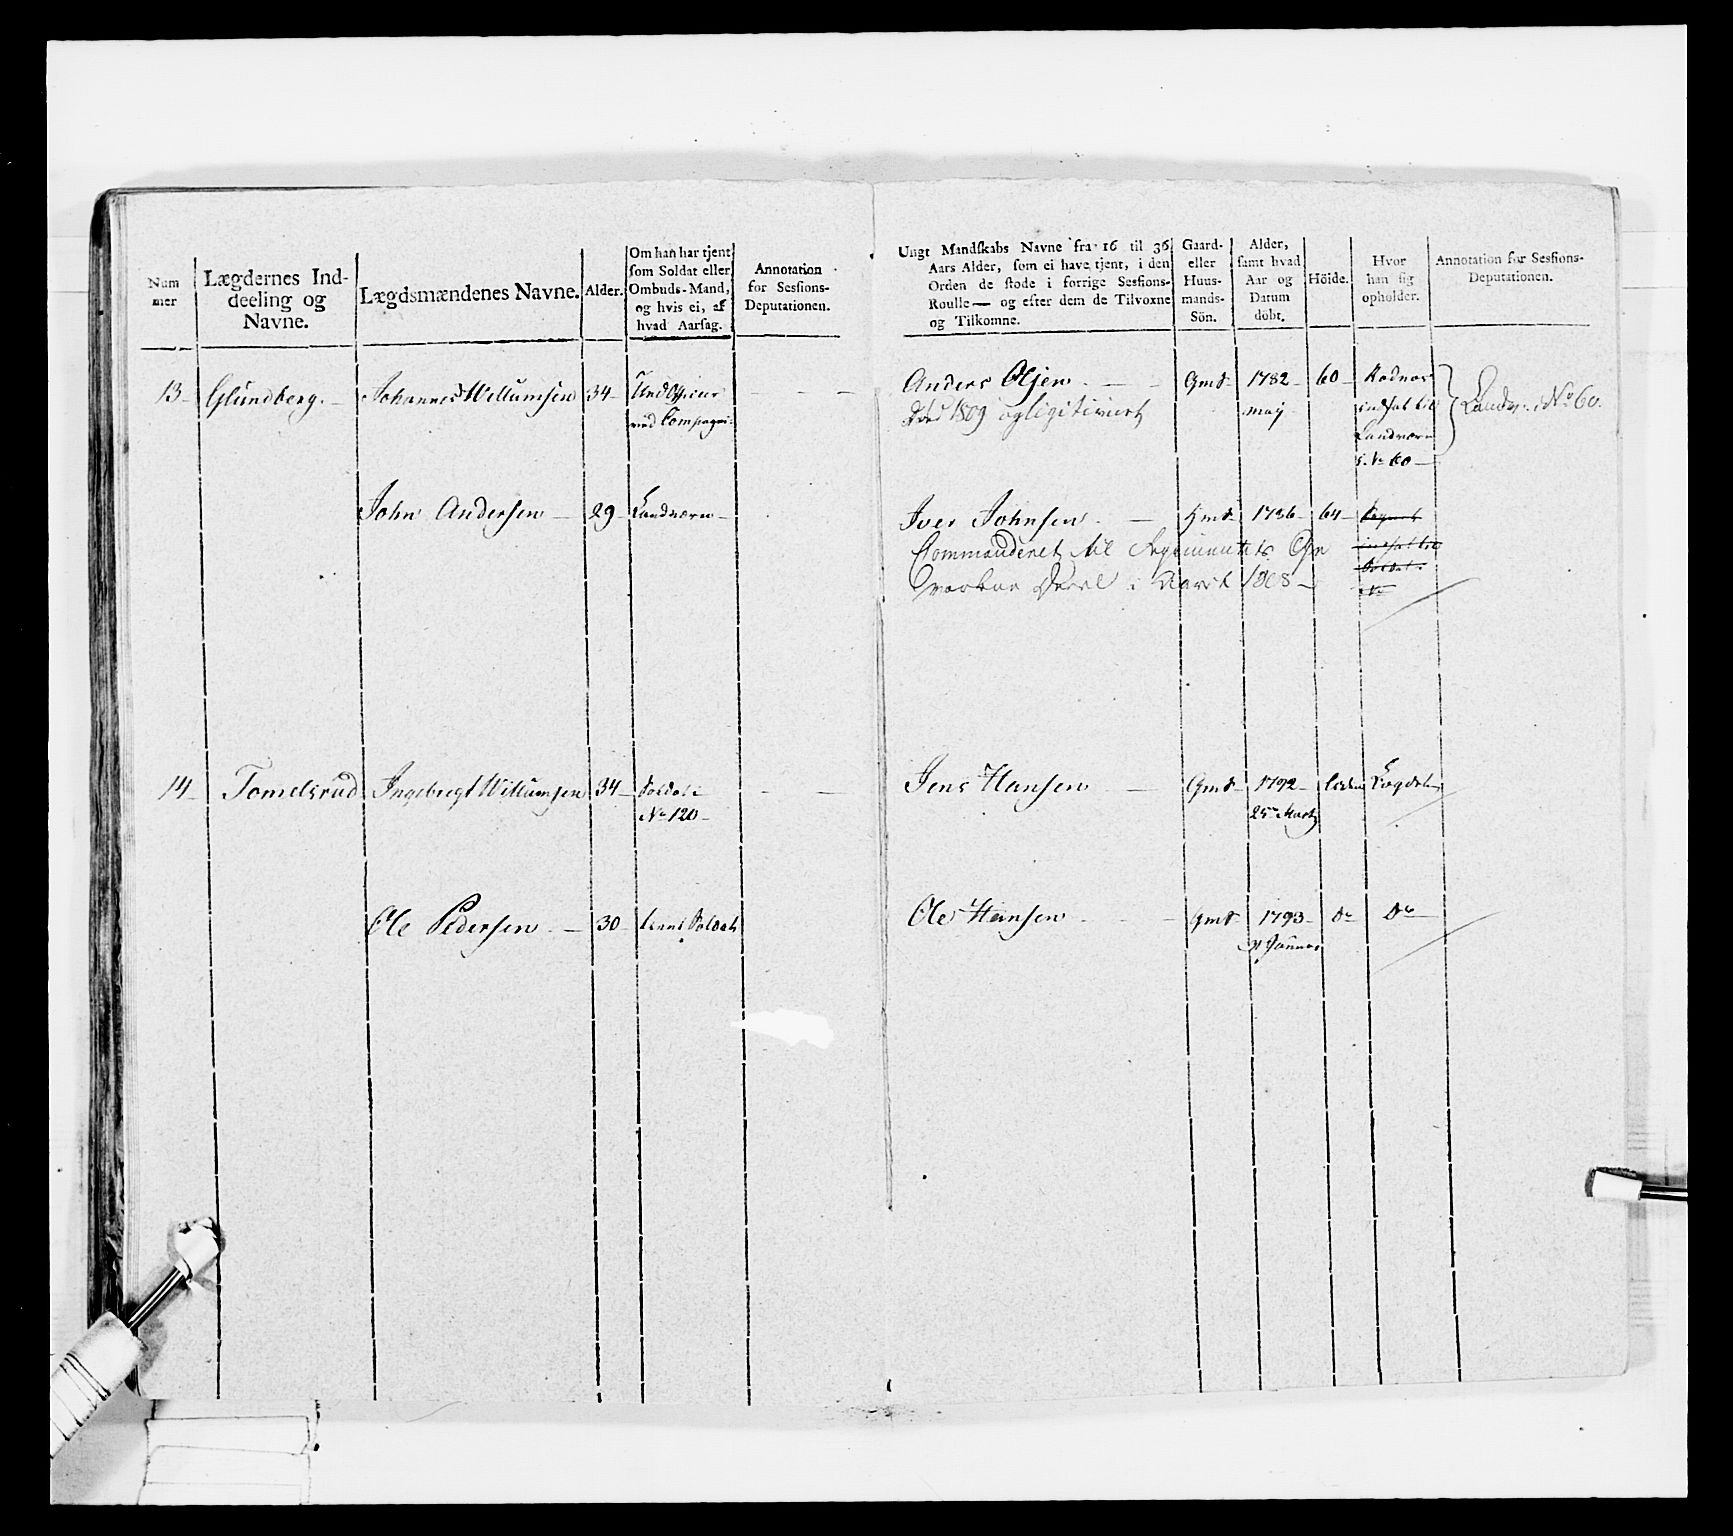 Num
mer
Lægdernes Ind-
deeling og
Navne.
Lægdsmændenes Navne.
Alder.
Om han har tjent
som Soldat eller
Ombuds-Mand,
og hvis ei, af
hvad Aarsag.
Annotation
for Sessions-
Deputationen.
Ungt Mandskabs Navne fra 16 til 36
Aars Alder, som ei have tjent, i den
Orden de stode i forrige Sessions-
Roulle — og efter dem de Tilvoxne
og Tilkomne.
Gaard-
eller
Huus-
mands-
Sön.
Alder,
samt hvad
Aar og
Datum
döbt.
Höide.
Hvor
han sig
opholder.
Annotation for Sessions-
Deputationen.
13 Glundberg. Johannes Willumsen 34 UndOfficier
ved Compagni:
John Andersen 29 Landværn
14 Tomelsrud Ingebregt Willumsen 34 Soldat:
No 120
Ole Pedersen 30 Soldat
Anders Olsen Gmd 1782 60
Död 1809 og ligitimert may indsat til Landv: No 60.
Landværn
s. No 60
Iver Johnsen 1786 64
Commanderet til Regimentets
i Marts 1808
Jens Hansen Gmd 1792 Lægden
25 Marty
Ole Hansen Gmd 1793 do do